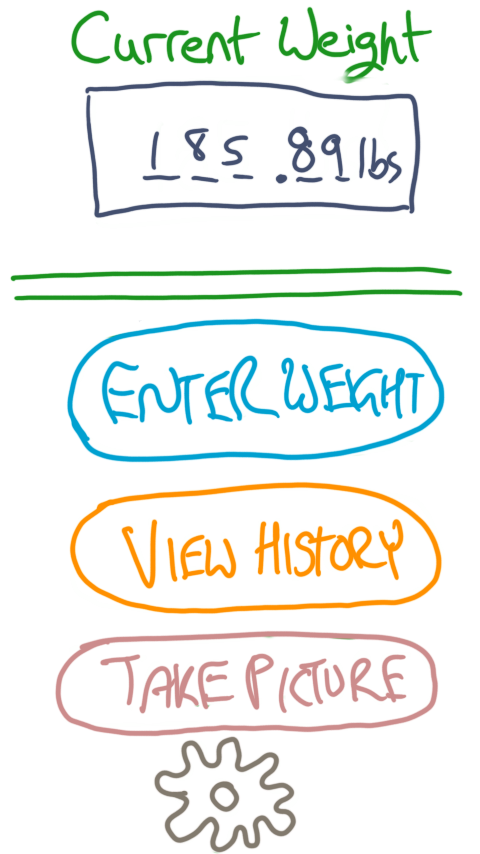 Current Weight
185.89 lbs
ENTER WEIGHT
VIEW HISTORY
TAKE PICTURE